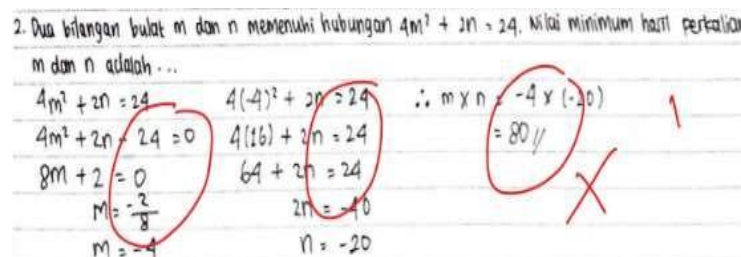 2. Dua bilangan bulat m dan n memenuhi hubungan 4m² + 2n = 24. Nilai minimum hasil perkalian
m dan n adalah ...
4m² + 2n = 24
4m² + 2n - 24 = 0
8m + 2 = 0
m = -2/8
m = -4
4(-4)² + 2n = 24
4(16) + 2n = 24
64 + 2n = 24
2n = -40
n = -20
∴ m x n = -4 x (-20)
= 80 //
1
X